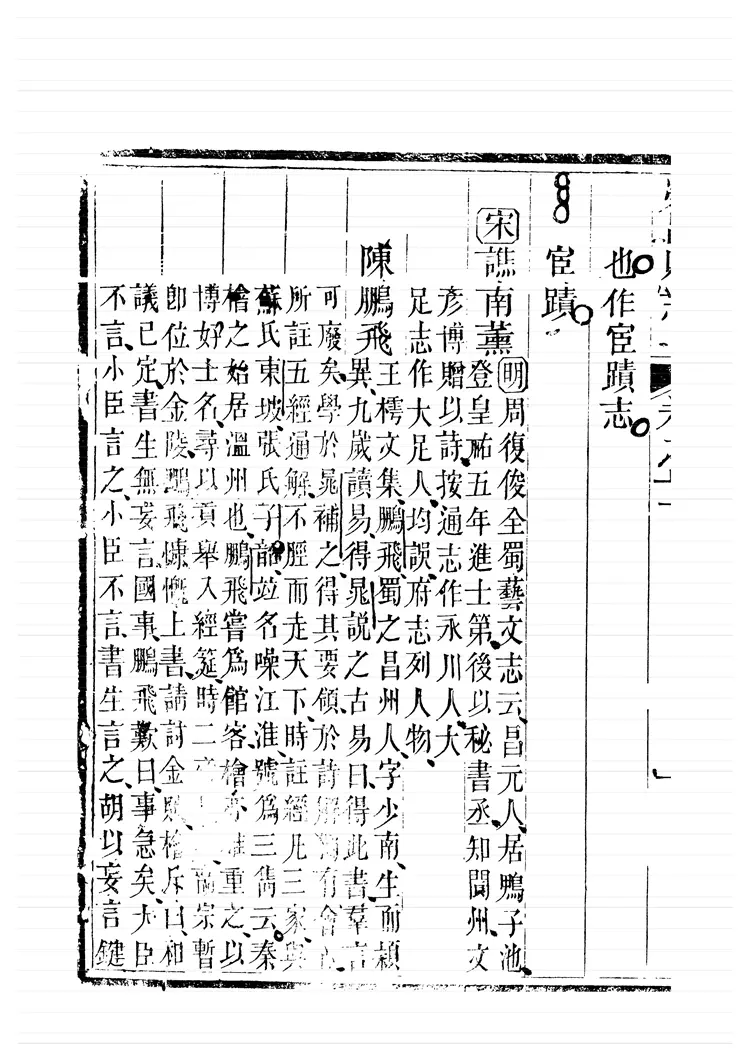 也作宦蹟志
宦蹟
宋譙南薰
明周復俊全蜀藝文志云昌元人居鴨子池
登皇祐五年進士第後以秘書丞知閬州文
彥博贈以詩按通志作永川人大
足志作大足人均誤府志列人物
陳鵬飛
王樗文集鵬飛蜀之昌州人字少南生而穎
異九歲讀易得晁説之古易曰得此書羣言
可廢矣學於晁補之得其要領於詩解有會
所註五經通解不脛而走天下時註經凡三家與
蘇氏東坡張氏子韶竝名噪江淮號爲三雋云秦
檜之始居溫州也鵬飛嘗爲館客檜亦雅重之以
博好士名尋以貢舉入經筵時二高宗暫
卽位於金陵鵬飛慷慨上書請討金賊檜斥曰和
議已定書生無妄言國事鵬飛歎曰事急矣大臣
不言小臣言之小臣不言書生言之胡以妄言鍵